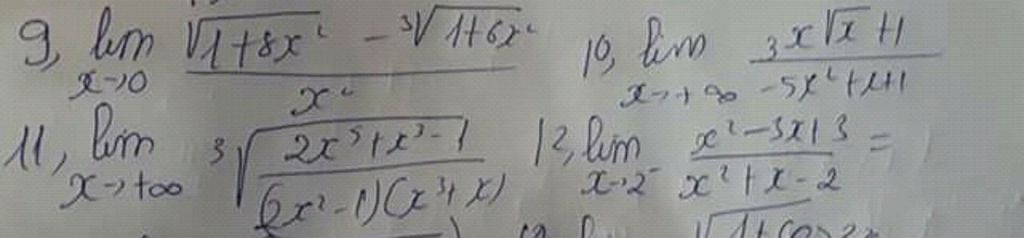 9, lim_{x→0} \frac{\sqrt{1+8x^2} - \sqrt[3]{1+6x^2}}{x^2} 10, lim_{x→+∞} \frac{3x\sqrt{x}+1}{-5x^2+x+1}
11, lim_{x→+∞} \sqrt[3]{\frac{2x^5+x^3-1}{(2x^2-1)(x^3+x)}} 12, lim_{x→2^-} \frac{x^2-3x+3}{x^2+x-2} =